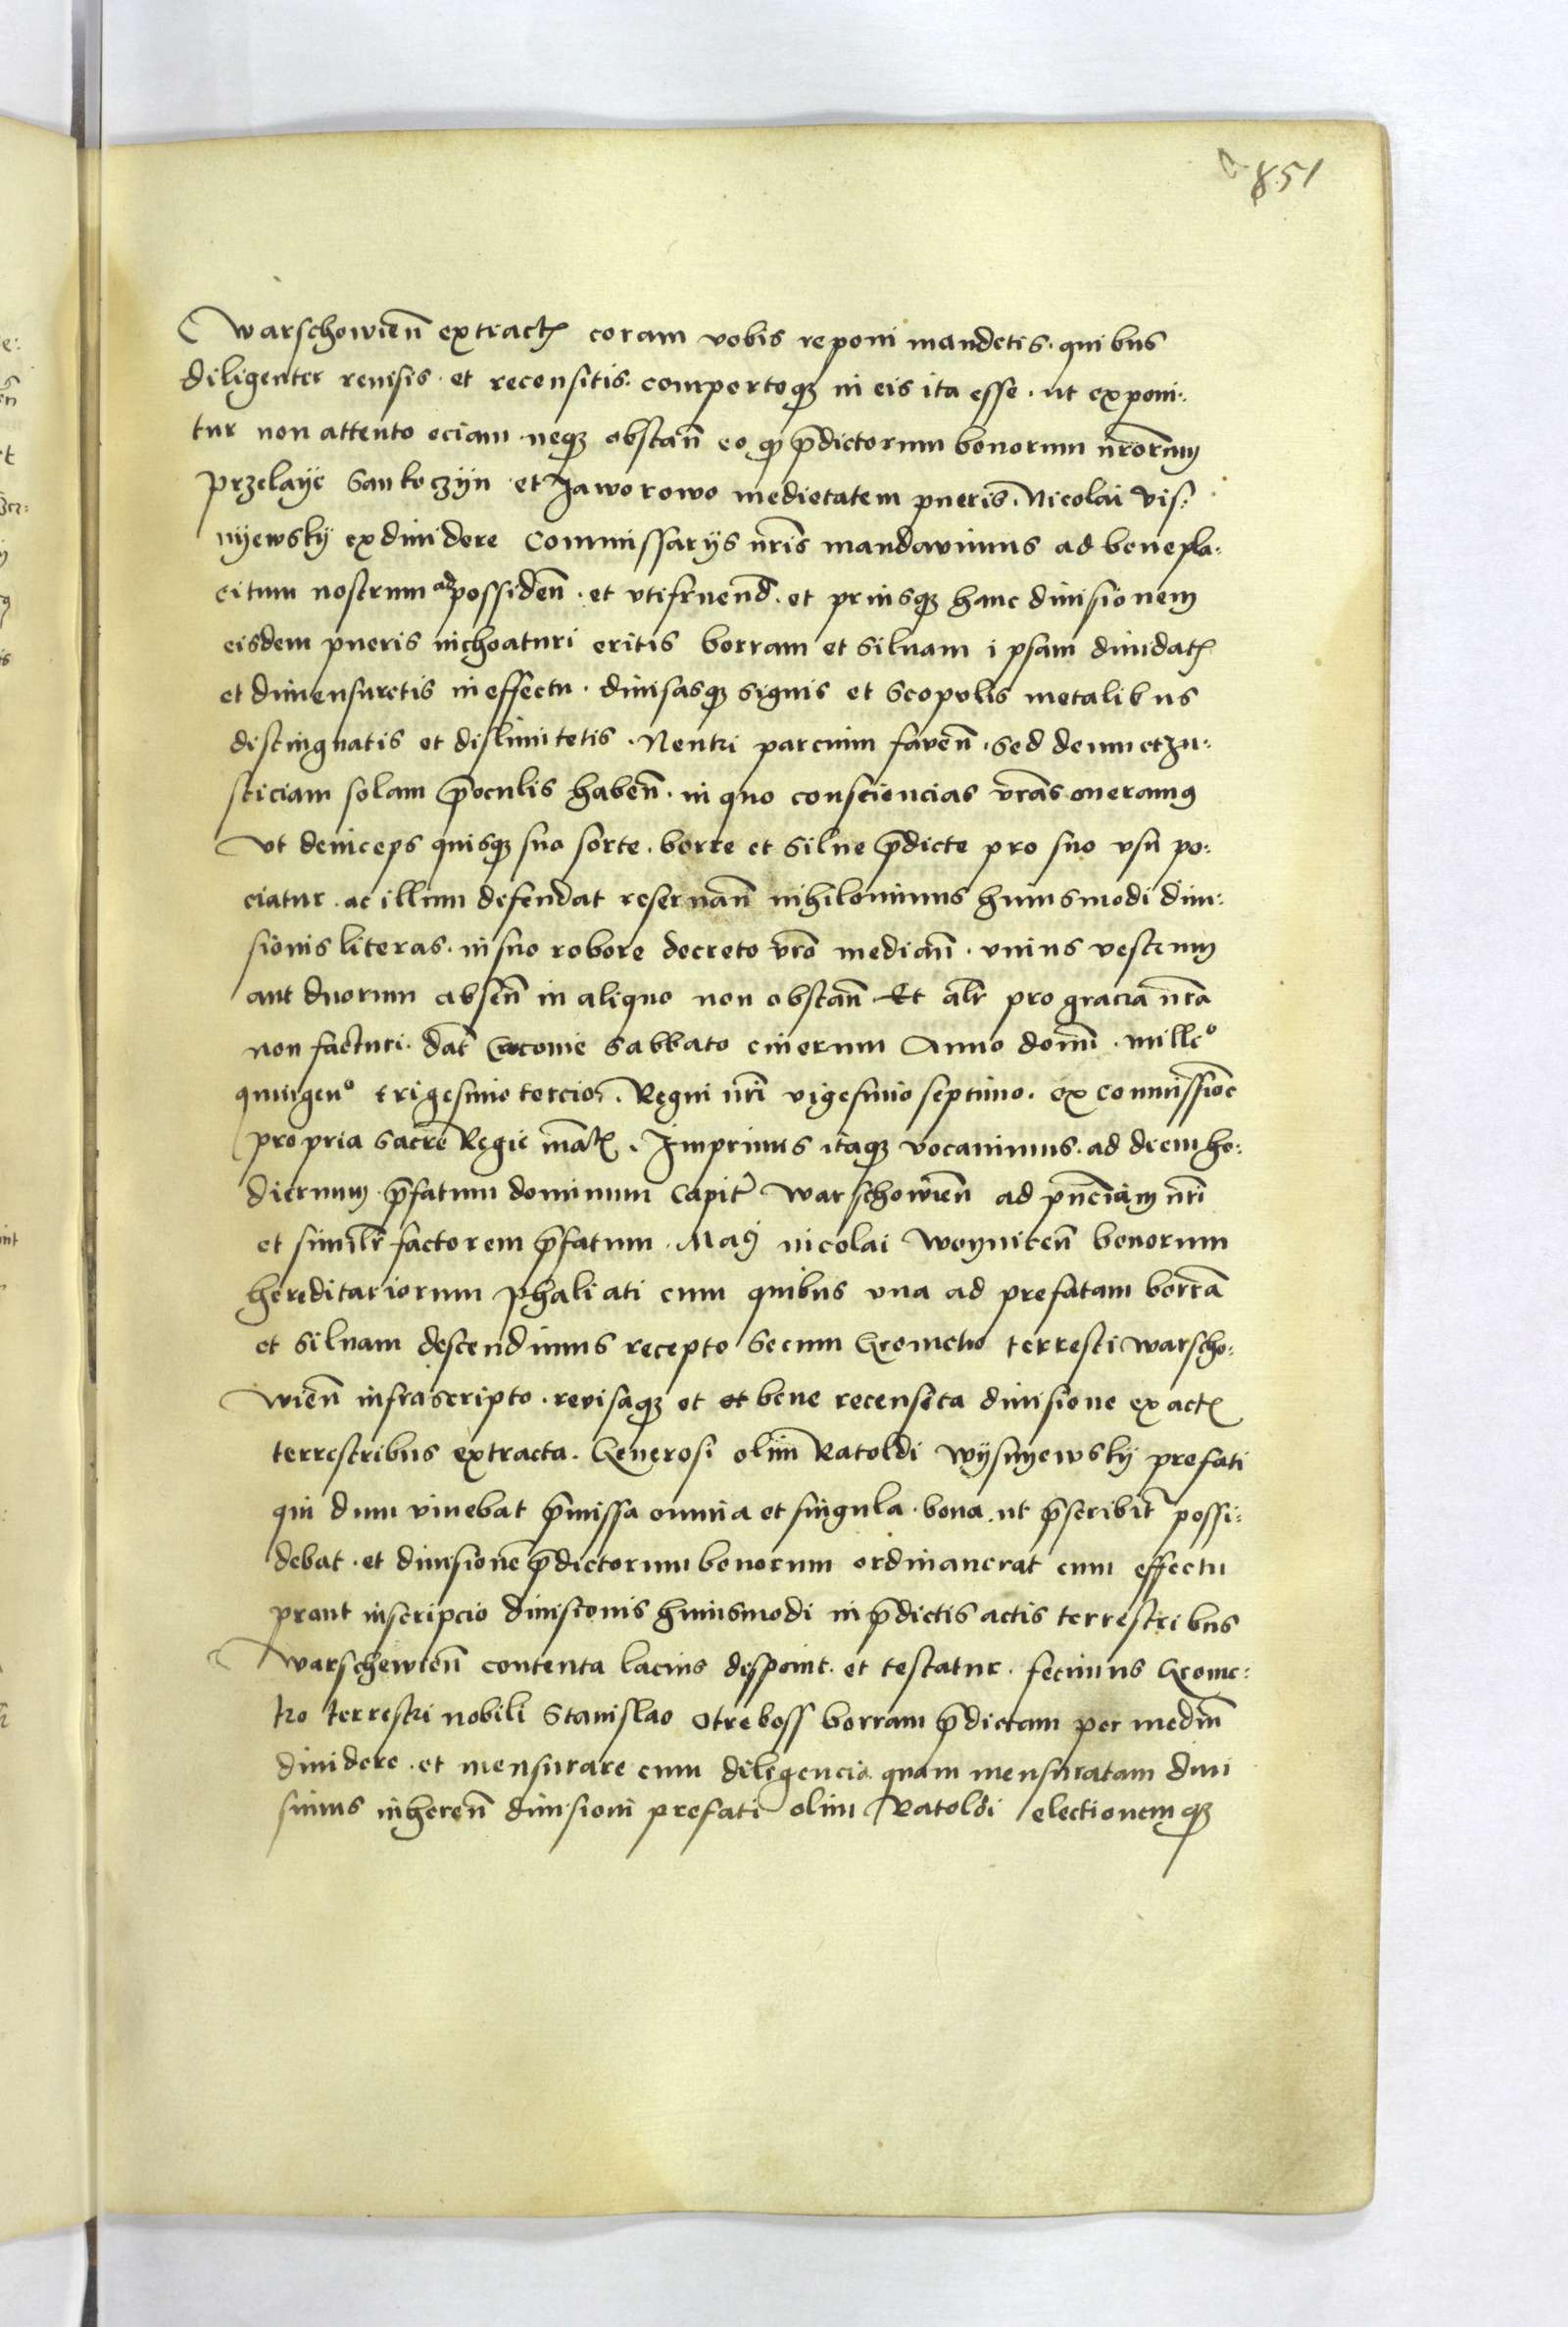 851
Warschowien̄ extractꝭ coram vobis reponi mandetis. quibus
diligenter reuisis. et recensitis. compertoqꝫ in eis ita esse. ut exponi:
tur non attento eciam neqꝫ obstan̄ eo qꝫ p̄dictorum bonorum nr̄orum
Przelaÿe Sankoczÿn et Jaworowo medietatem pueris. Nicolai Vis:
nÿewskÿ exdiuidere Commissarÿs nr̄is mandauimus ad benepla:
citum nostrum ad possiden̄. et vtifruend̄. et priusqꝫ hanc diuisionem
eisdem pueris inchoaturi eritis borram et siluam ipsam diuidatꝭ
et dimensuretis in effectu. diuisasqꝫ signis et Scopulis metalibus
distinguatis et dislimitetis. Neutri parcium faven̄. sed deum et Ju:
sticiam solam p̄ oculis haben̄. in quo consciencias vr̄as oneramus
Vt deinceps quisqꝫ sua sorte. borre et silue p̄dicte pro suo vsu po:
ciatur. ac illum defendat reseruan̄ nihilominus huiusmodi diui:
sionis literas. in suo robore decreto vr̄o median̄. vnius vestrum
aut duorum absen̄ in aliquo non obstan̄ Et alr̄ pro gracia nr̄a
non facturi. dat̄ Cracouie Sabbato cinerum Anno domi. millo
quingeno trigesimo tercio. Regni nr̄i vigesimo septimo. ex commissione
propria Sacre Regie mat̄ꝭ. Imprimis itaqꝫ vocauimus. ad diem ho:
diernum p̄fatum dominum Capit̄ Warschowien̄ ad pn̄ciam nr̄i
et similr̄ factorem p̄fatum. Mag̃ nicolai Woynicen̄ bonorum
hereditariorum Phaliati cum quibus vna ad prefatam borrā
et siluam descendimus recepto Secum Geometro terrestri Warscho:
wien̄ infrascripto. revisaqꝫ et et bene recensita diuisione ex actꝭ
terrestribus extracta. Generosi olim Ratoldi Wÿsnyewskÿ prefati
qui dum viuebat p̄missa omnia et singula. bona. ut p̄scribit̄ possi:
debat. et diuisionē p̄dictorum bonorum ordinauerat cum effectu
prout inscripcio diuisionis huiusmodi in p̄dictis actis terrestribus
Warschewien̄ contenta lacius disponit. et testatur. fecimus Geome:
tro terrestri nobili Stanislao Otreboss borram p̄dictam per mediū
diuidere. et mensurare cum diligencia quam mensuratam diui
simus inheren̄ diuisioni prefati olim Ratoldi electionemqꝫ